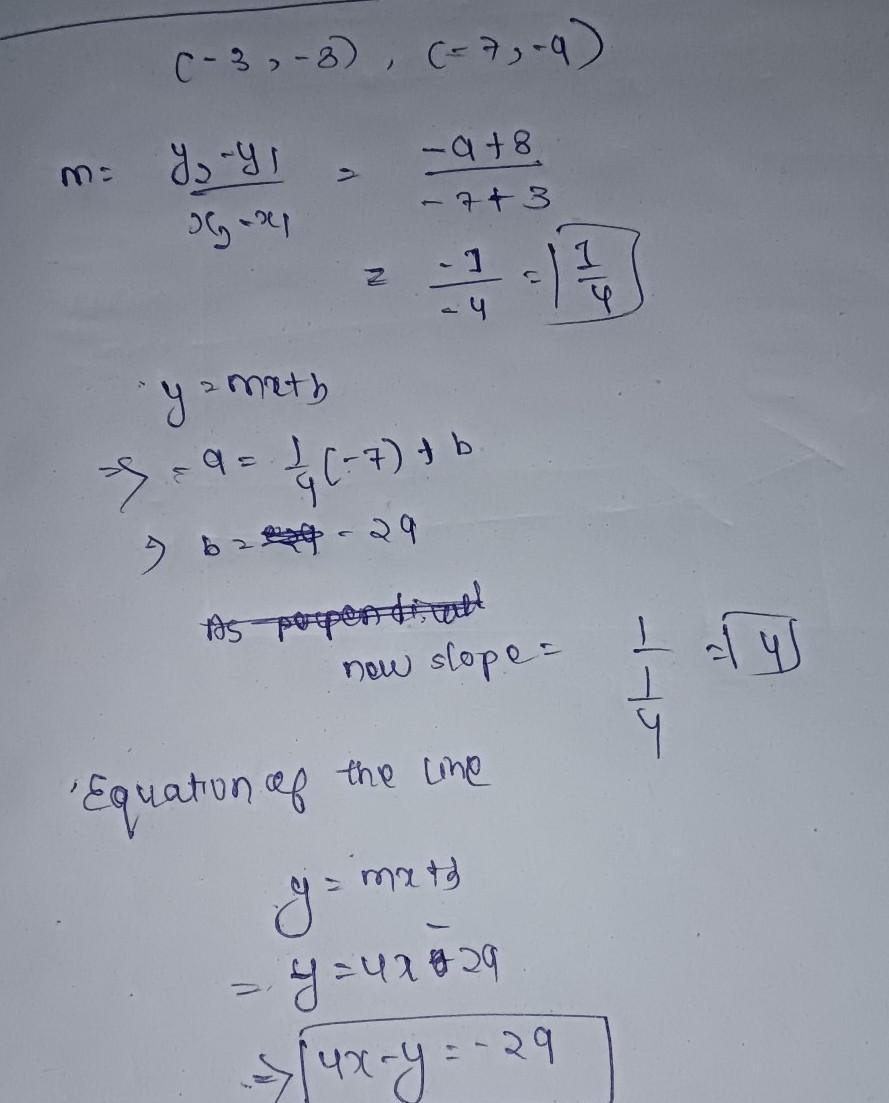 (-3, -8), (-7, -9)
m = y2-y1 / x2-x1 = -9+8 / -7+3
= -1/-4 = 1/4
y = mx+b
⇒ -9 = 1/4(-7) + b
⇒ b = -29
new slope = 1 / 1/4 = 4
Equation of the line
y = mx+b
= y = 4x - 29
⇒ 4x-y = -29